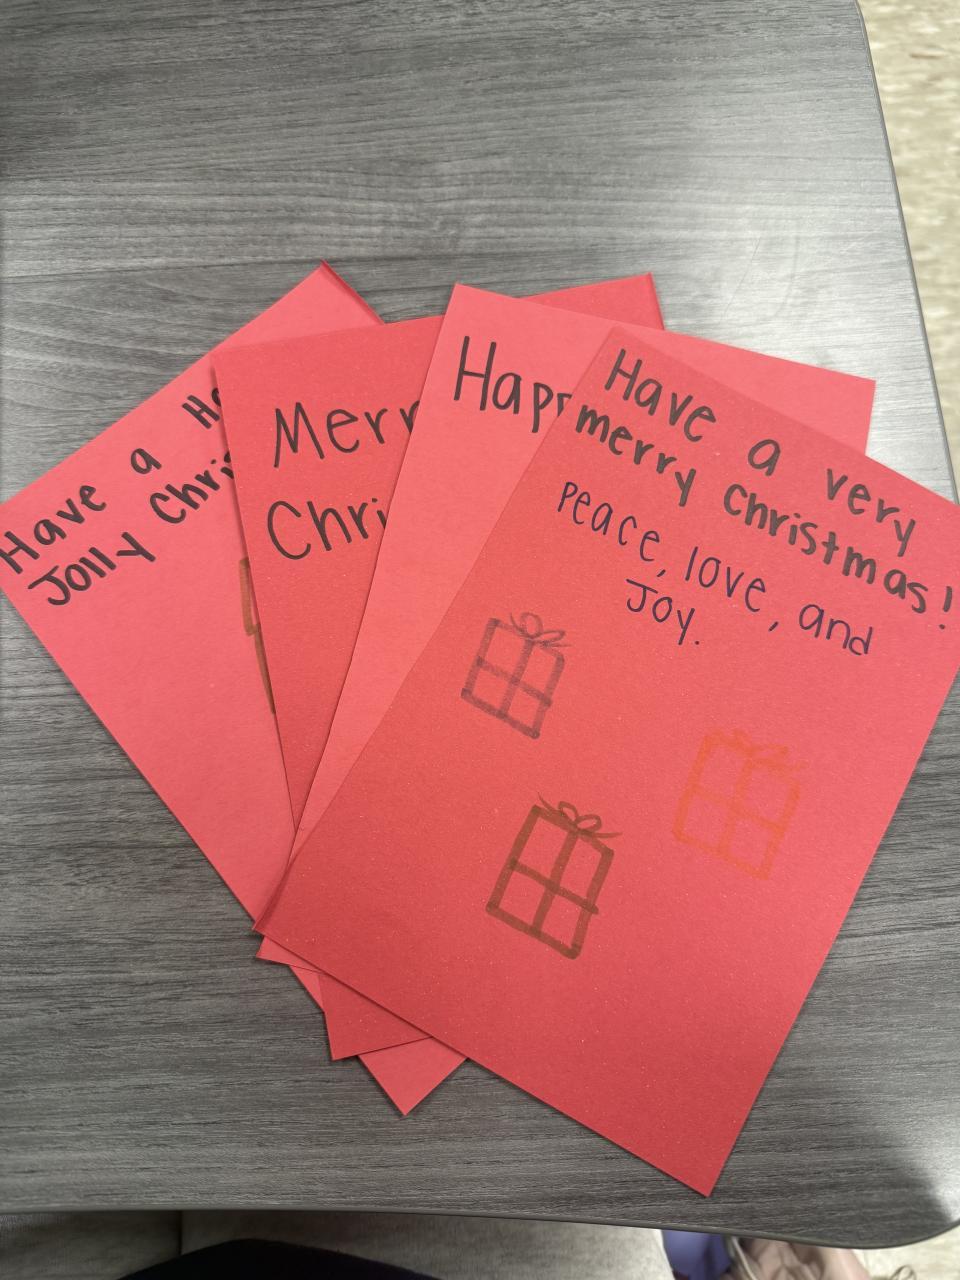 Have a
Jolly
Merr
Chri
Have a very
merry Christmas!
Peace, love, and
Joy.